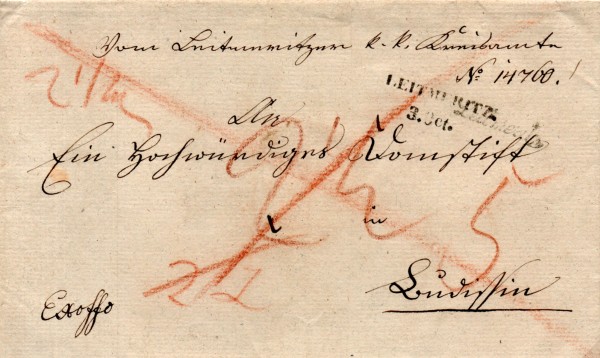 Vom Leitmeritzer k. k. Kreisamte
No 14760.
LEITMERITZ
3. Oct.
An
Ein Hochwürdiges Domstift
in
5
Budissin
Exoffo